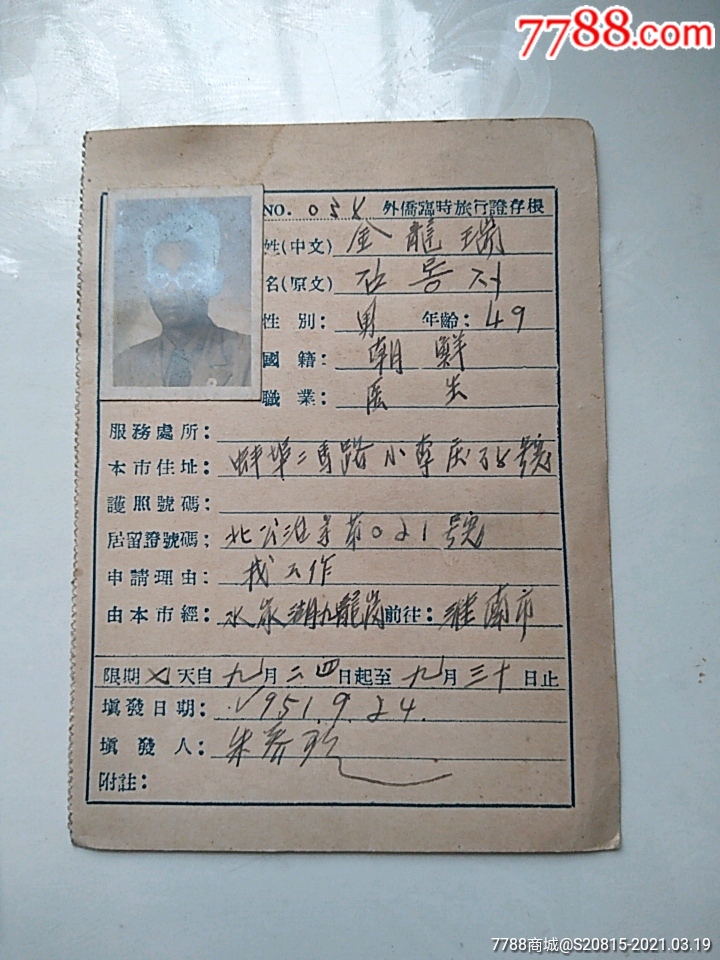 7788.com
NO. 外僑臨時旅行證存根
姓(中文) 金龍瑞
名(原文)
性別: 男 年齡: 49
國籍: 朝鮮
職業: 医生
服務處所:
本市住址: 蚌埠二馬路小李庄 號
護照號碼:
居留證號碼: 第021號
申請理由: 找工作
由本市經: 水家湖九龍岗 前往: 淮南市
限期 七 天自 九 月 二四 日起至 九 月 三十 日止
填發日期: 1951.9.24.
填發人: 朱
附註:
7788商城@S20815-2021.03.19